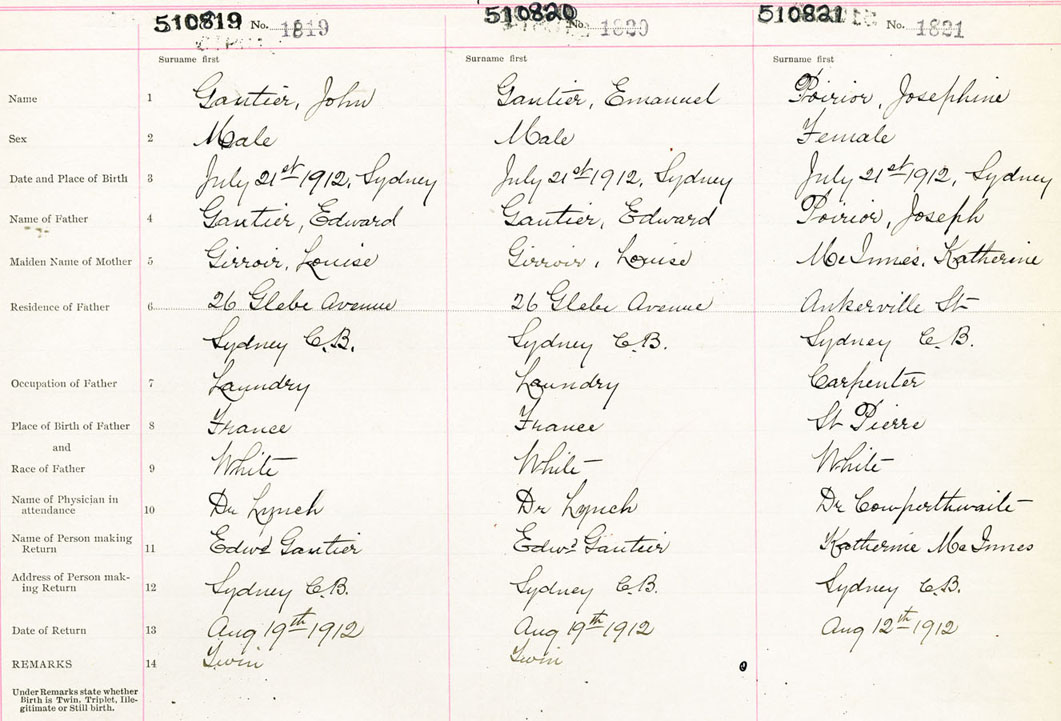 510819 No. 1819 510820 No. 1820 510821 No. 1821
Surname first Surname first Surname first
Name 1 Gautier, John Gautier, Emanuel Poirior, Josephine
Sex 2 Male Male Female
Date and Place of Birth 3 July 21st 1912, Sydney July 21st 1912, Sydney July 21st 1912, Sydney
Name of Father 4 Gautier, Edward Gautier, Edward Poirior, Joseph
Maiden Name of Mother 5 Girroir, Louise Girroir, Louise McInnes, Katherine
Residence of Father 6 26 Glebe Avenue 26 Glebe Avenue Ankerville St
Sydney C.B. Sydney C.B. Sydney C.B.
Occupation of Father 7 Laundry Laundry Carpenter
Place of Birth of Father 8 France France St Pierre
and
Race of Father 9 White White White
Name of Physician in
attendance 10 Dr Lynch Dr Lynch Dr Cowperthwaite
Name of Person making
Return 11 Edwd Gautier Edwd Gautier Katherine McInnes
Address of Person mak-
ing Return 12 Sydney C.B. Sydney C.B. Sydney C.B.
Date of Return 13 Aug 19th 1912 Aug 19th 1912 Aug 12th 1912
REMARKS 14 Twin Twin
Under Remarks state whether
Birth is Twin, Triplet, Ille-
gitimate or Still birth.